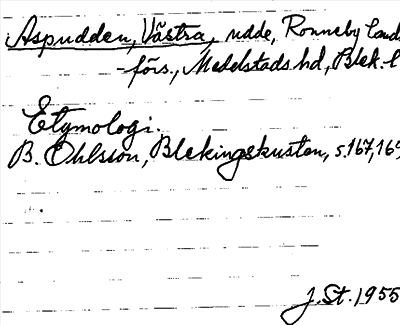 Aspudden, Västra, udde, Ronneby lands
-förs., Medelstads hd, Blek. l
Etymologi.
B. Ohlsson, Blekingskusten, s. 167, 169
J. St. 1955